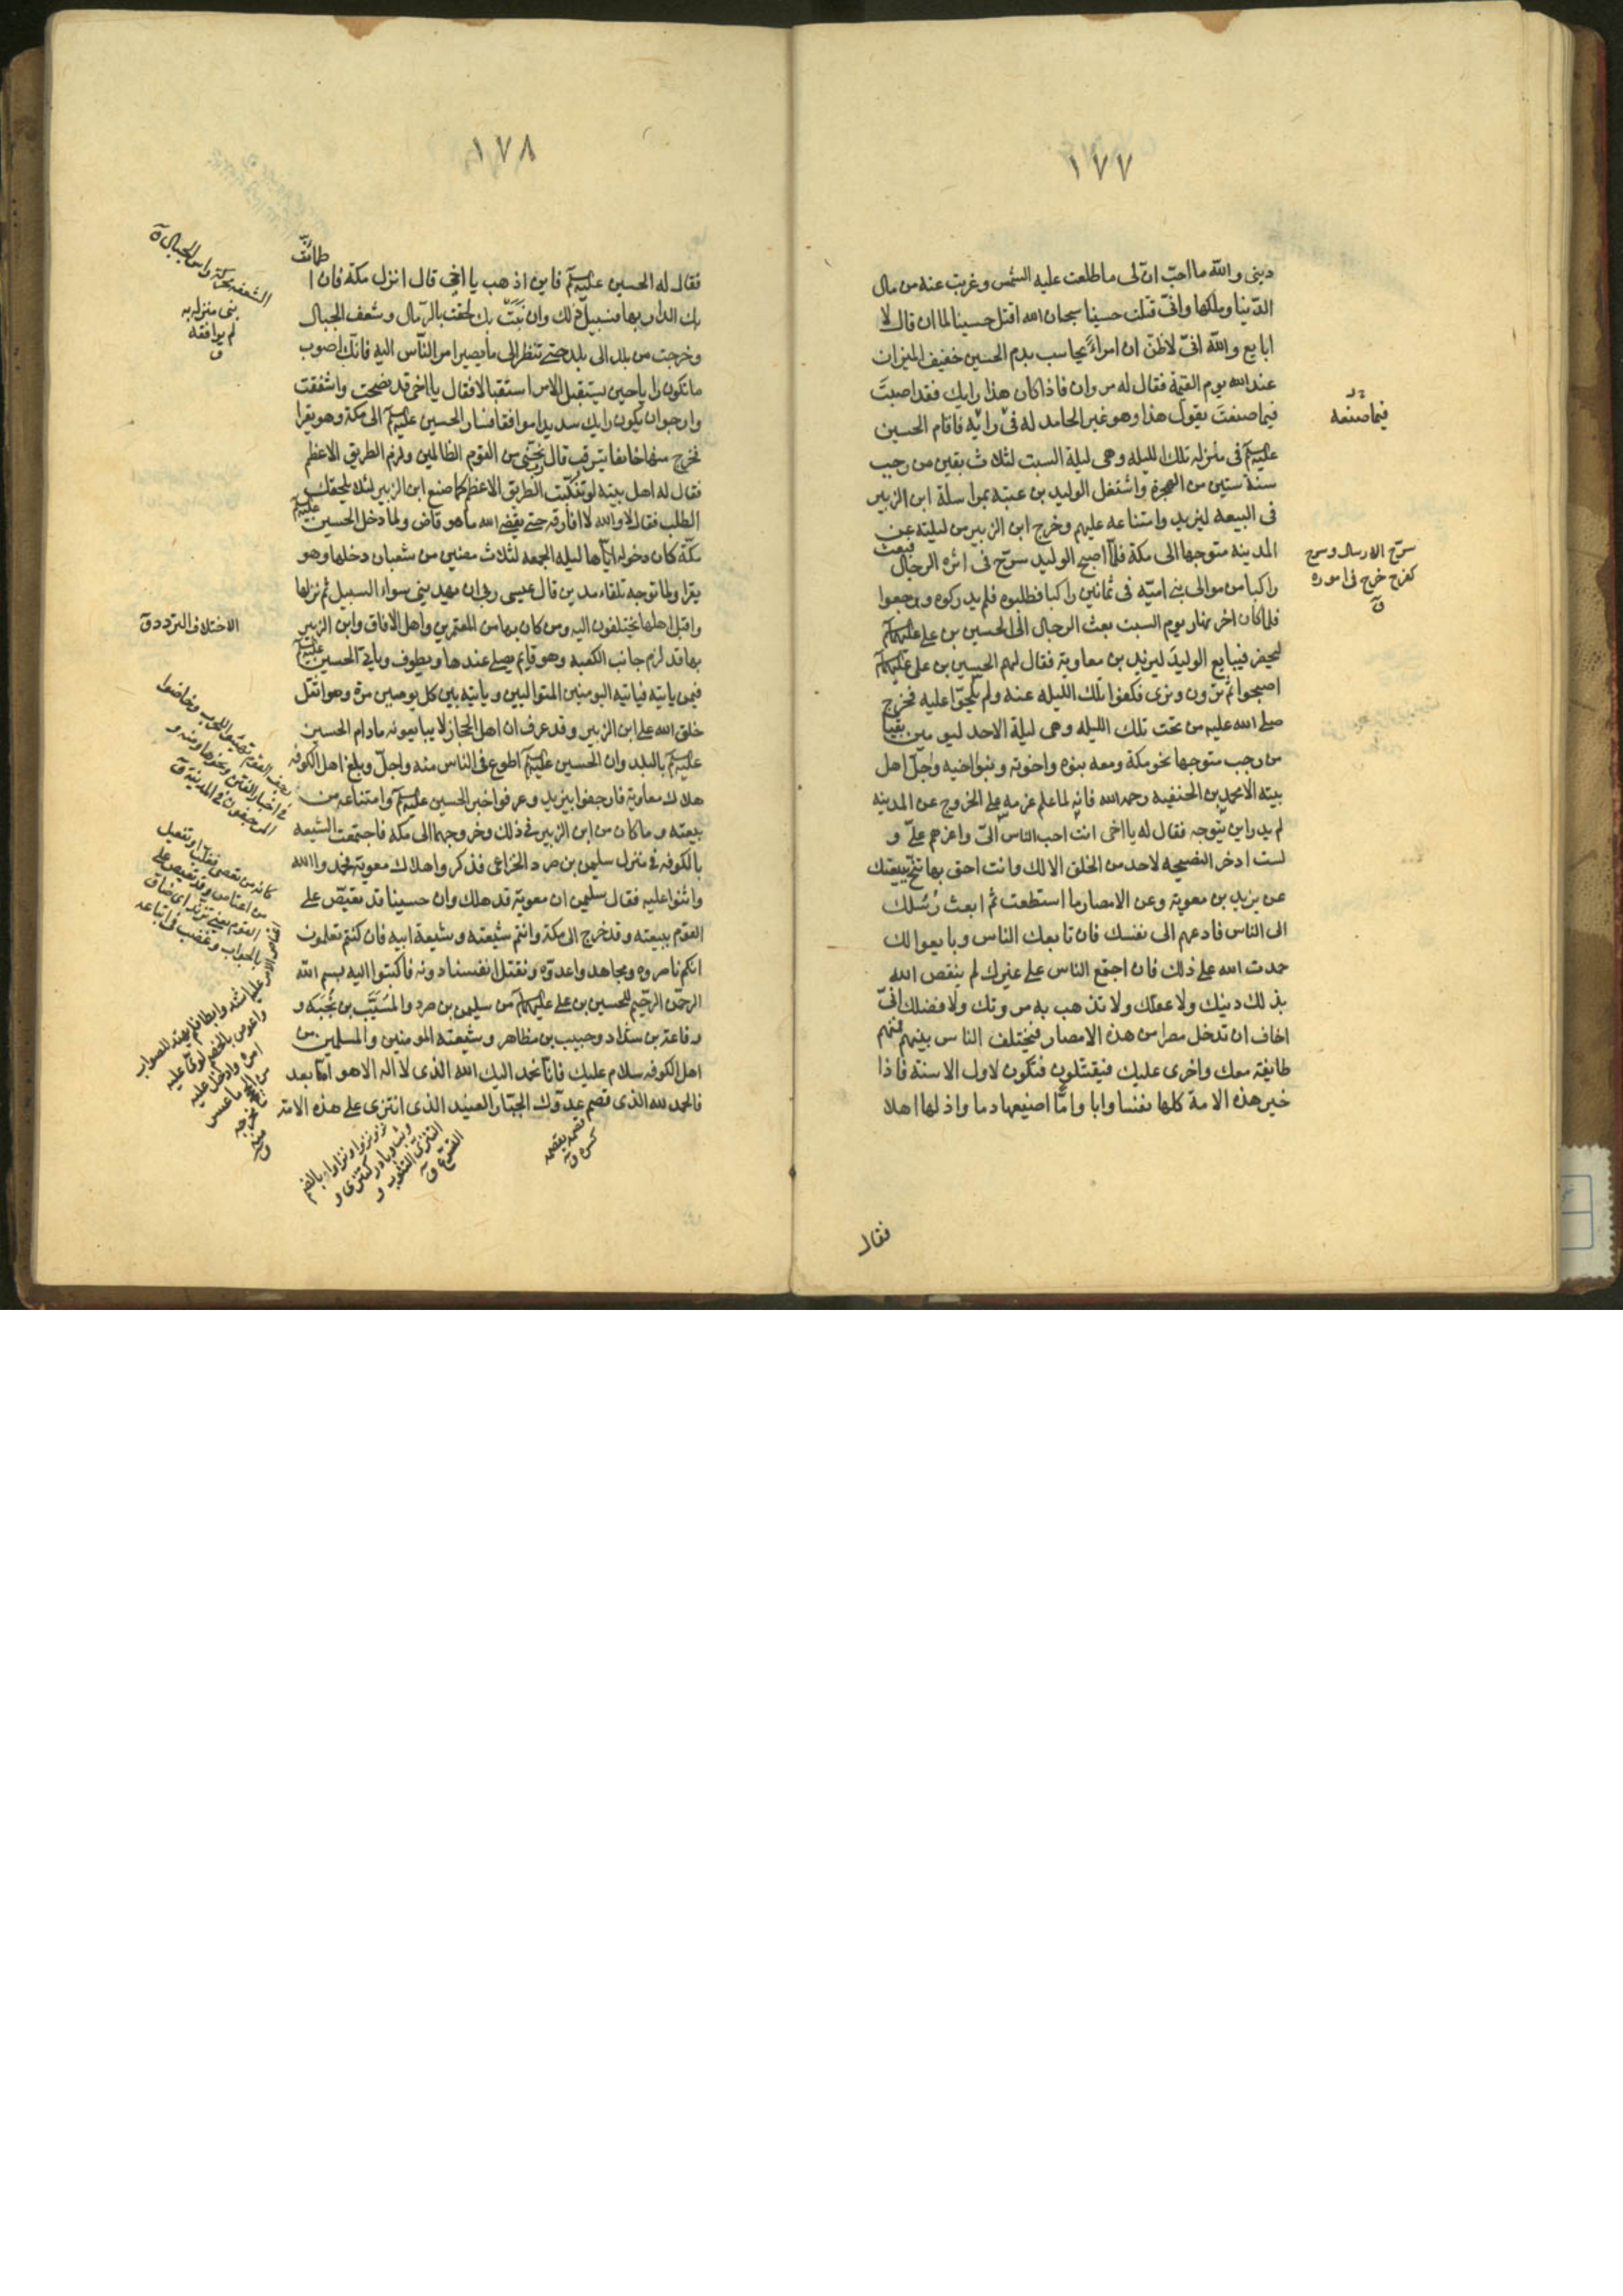 ١٧٧
دينى والله ما احبّ انّ لى ما طلعت عليه الشمس وغربت عنه من مال
الدّنيا وملكها وانّى قتلت حسينا سبحان الله اقتل حسينا لما ان قال لا
ابايع والله انّى لاظنّ ان امراءً يحاسب بدم الحسين خفيف الميزان
عند الله يوم القيمة فقال له مروان فاذا كان هذا رايك فقد اصبتَ
فيما صنعتَ يقول هذا وهو غير الحامد له فى رايه فاقام الحسين
عليه السلم فى منزله تلك الليله وهى ليلة السبت لثلاث بقين من رجب
سنة ستين من الهجرة واشتغل الوليد بن عتبة بمراسلة ابن الزبير
فى البيعه ليزيد وامتناعه عليهم وخرج ابن الزبير من ليلته عن
المدينه متوجها الى مكة فلمّا اصبح الوليد سرّح فى اثره الرجال فبعث
راكبا من موالى بنى اميّه فى ثمانين راكبا فطلبوه فلم يدركوه ورجعوا
فلما كان اخر نهار يوم السبت بعث الرجال الى الحسين بن على عليهما السلم
ليحضر فيبايع الوليدَ ليزيد بن معاوية فقال لهم الحسين بن على عليهما السلم
اصبحوا ثم ترون ونرى فكفوا تلك الليله عنه ولم يلحّوا عليه فخرج
صلى الله عليه من تحت تلك الليله وهى ليلة الاحد ليومين بقيا
من رجب متوجها نحو مكة ومعه بنوه واخوته وبنوا اخيه وجلّ اهل
بيته الا محمد بن الحنفيه رحمه الله فانه لما علم عزمه على الخروج عن المدينه
لم يدر اين يتوجه فقال له يا اخى انت احب الناس الىّ واعزهم علىّ و
لست ادخر النصيحه لاحد من الخلق الا لك وانت احق بها تنحّ ببيعتك
عن يزيد بن معوية وعن الامصار ما استطعت ثم ابعث رُسُلك
الى الناس فادعهم الى نفسك فان تابعك الناس وبايعوا لك
حمدت الله على ذلك فان اجتمع الناس على غيرك لم ينقص الله
بذلك دينك ولا عقلك ولا تذهب به مروتك ولا فضلك انّى
اخاف ان تدخل مصرا من هذه الامصار فيختلف الناس بينهم فمنهم
طايفة معك واخرى عليك فيقتتلون فتكون لاول الاسنة فاذا
خير هذه الامة كلها نفسا وابا وامّا اضيعها دما واذلها اهلا
فقال
فيما صنعه
سرّح الارسال وسرح
كفرح خرج فى اموره
ق
١٧٨
فقال له الحسين عليه السلم فاين اذهب يا اخى قال انزل مكة فان اطمانّت
بك الدار بها فسبيل ذلك وان نَبَتْ بك لحقت بالرمال وشعف الجبال
وخرجت من بلد الى بلد حتى تنظر الى ما يصير امر الناس اليه فانك اصوب
ما تكون رايا حين يستقبل الامر استقبالا فقال يا اخى قد نصحت واشفقت
وارجوا ان يكون رايك سديدا موافقا فسار الحسين عليه السلم الى مكة وهو يقرا
فخرج منها خائفا يترقب قال ربّ نجّنى من القوم الظالمين ولزم الطريق الاعظم
فقال له اهل بيته لو تنكبت الطريق الاعظم كما صنع ابن الزبير لئلا يلحقك
الطلب فقال لا والله لا افارقه حتى يقضى الله ما هو قاض ولما دخل الحسين عليه السلم
مكة كان دخوله اياها ليلة الجمعه لثلاث مضين من شعبان دخلها وهو
يقرا ولما توجه تلقاء مدين قال عسى ربى ان يهدينى سواء السبيل ثم نزلها
واقبل اهلها يختلفون اليه ومن كان بها من المعتمرين واهل الافاق وابن الزبير
بها قد لزم جانب الكعبه وهو قايم يصلى عندها ويطوف وياتى الحسين عليه السلم
فيمن ياتيه فياتيه اليومين المتواليين وياتيه بين كل يومين مرّة وهو اثقل
خلق الله على ابن الزبير وقد عرف ان اهل الحجاز لا يبايعونه مادام الحسين
عليه السلم بالبلد وان الحسين عليه السلم اطوع فى الناس منه واجلّ وبلغ اهل الكوفه
هلاك معاوية فارجفوا بيزيد وعرفوا خبر الحسين عليه السلم وامتناعه من
بيعته وما كان من ابن الزبير فى ذلك وخروجهما الى مكه فاجتمعت الشيعه
بالكوفه فى منزل سليمن بن صرد الخزاعى فذكروا هلاك معوية فحمدوا الله
واثنوا عليه فقال سليمن ان معوية قد هلك وان حسينا قد تقيّض على
القوم ببيعته وقد خرج الى مكة وانتم شيعته وشيعة ابيه فان كنتم تعلمون
انكم ناصروه ومجاهدوا عدوّه ونقتل انفسنا دونه فاكتبوا اليه بسم الله
الرحمن الرحيم للحسين بن على عليهما السلم من سليمن بن صرد والمسَيَّب بن نجَبَة و
رفاعة بن شداد وحبيب بن مظاهر وشيعته المومنين والمسلمين من
اهل الكوفه سلام عليك فانا نحمد اليك الله الذى لا اله الا هو اما بعد
فالحمد لله الذى قصم عدوّك الجبّار العنيد الذى انتزى على هذه الامة
الشعفه محركة راس الجبال ق
نبى منزله به
لم يوافقه
ق
الاختلاف التردد ق
قصمه يقصمه
كسره ق